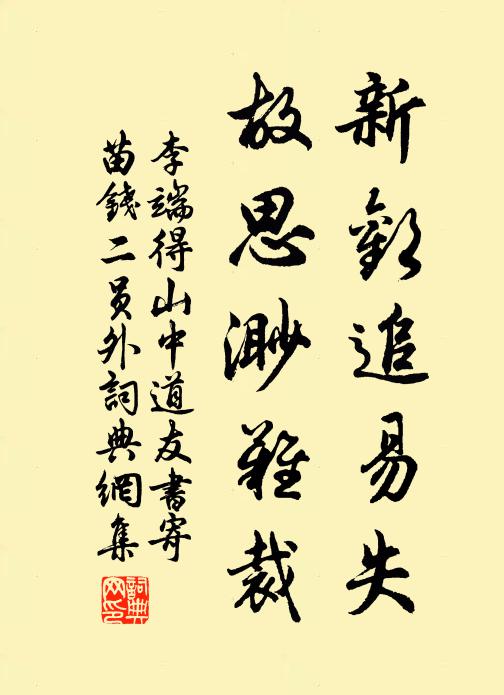 新歡追易失
故思渺難裁
李端得山中道友書寄
苗錢二員外詞典網集
詞典
網印